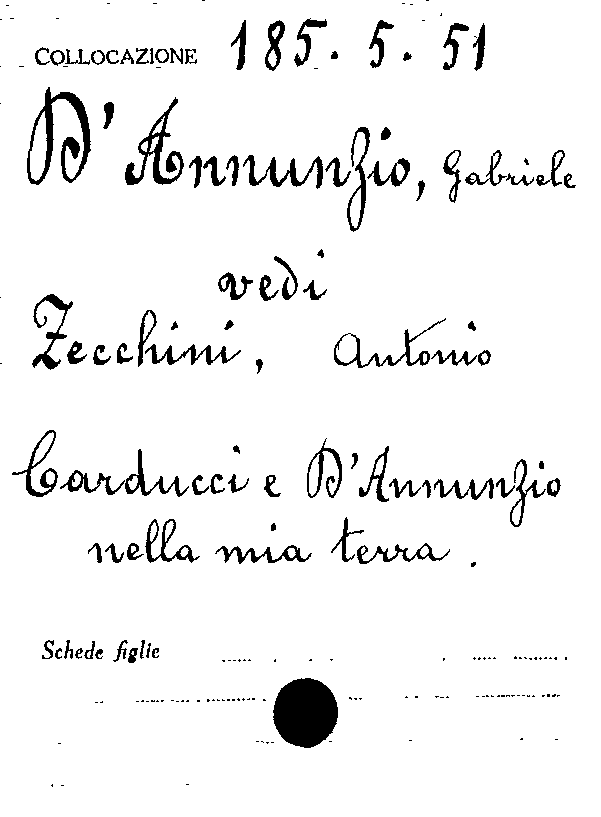 COLLOCAZIONE 185. 5. 51
D'Annunzio, Gabriele
vedi
Zecchini, Antonio
Carducci e D'Annunzio
nella mia terra.
Schede figlie